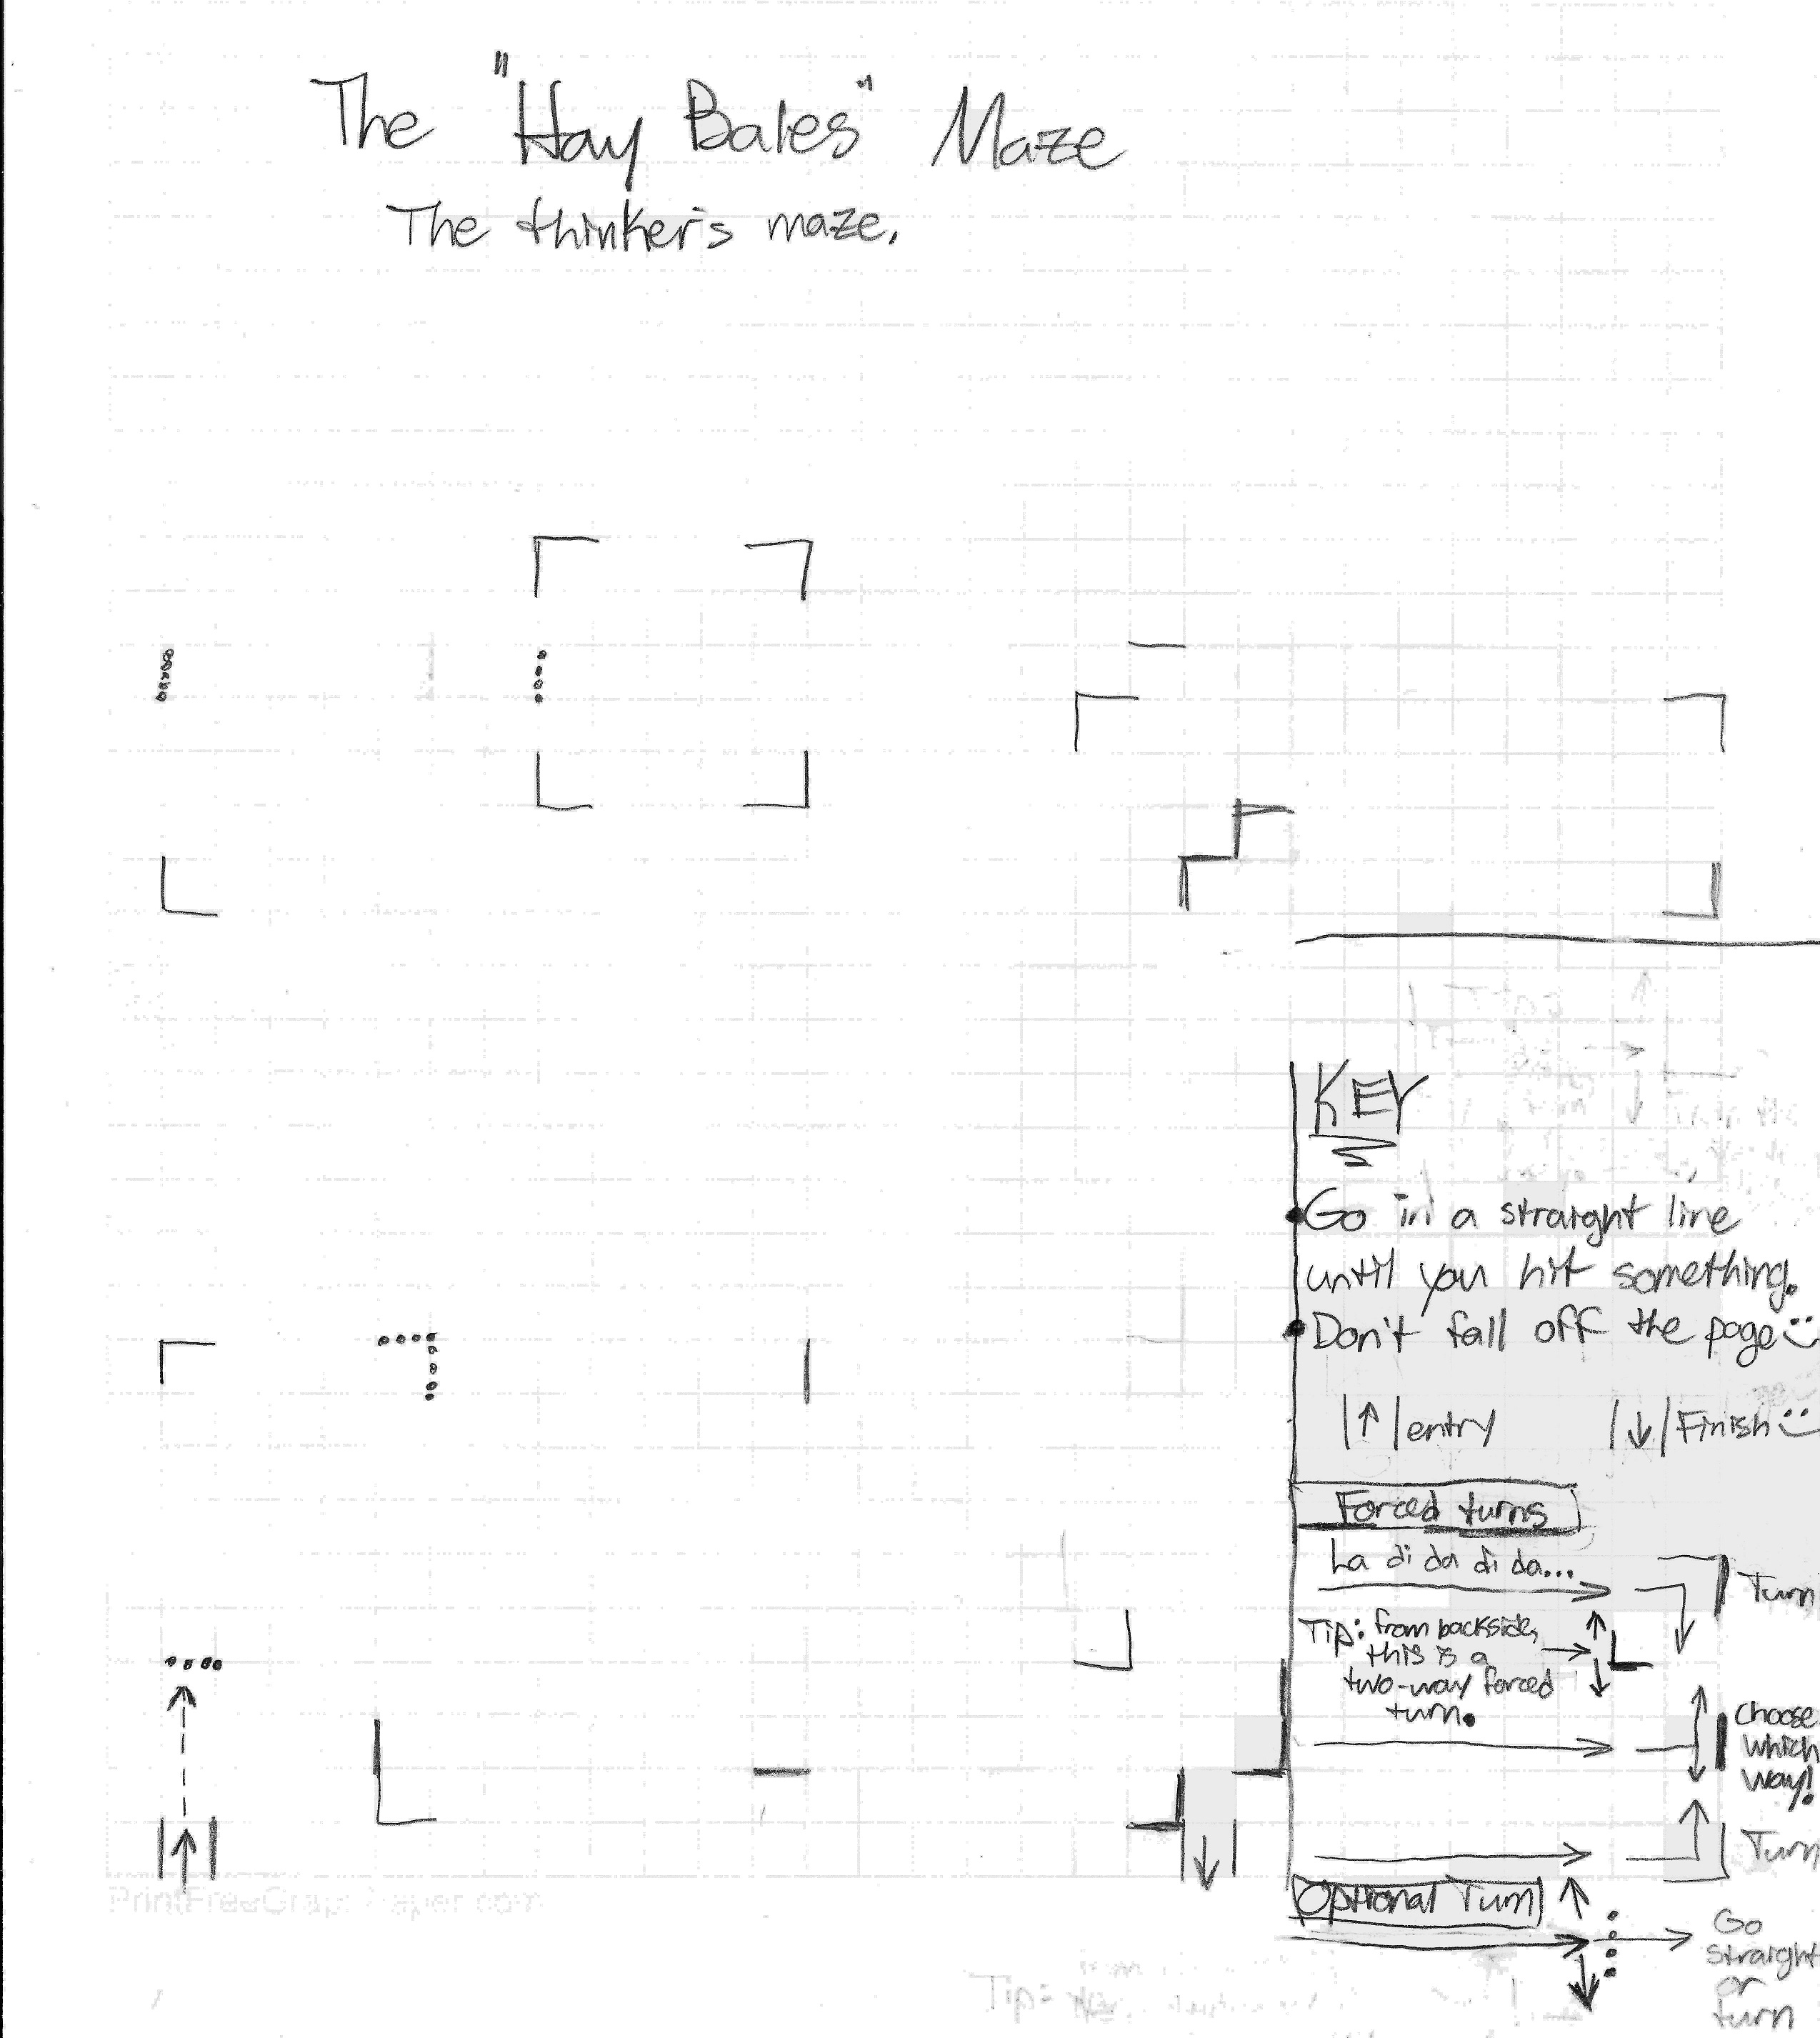 The "Hay Bales" Maze
The thinker's maze.
KEY
Go in a straight line
until you hit something.
Don't fall off the page
entry
Finish
Forced turns
La di da di da...
Turn
Tip: from backside,
this is a
two-way forced
turn.
Choose
which
way!
Turn
Optional Turn
Go
straight
or
turn
PrintFreeGraphPaper.com
Tip: